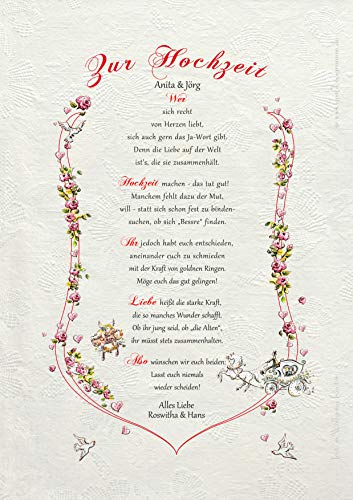 Zur Hochzeit
Anita & Jörg
Wer
sich recht
von Herzen liebt,
sich auch gern das Ja-Wort gibt.
Denn die Liebe auf der Welt
ist's, die sie zusammenhält.
Hochzeit machen - das tut gut!
Manchem fehlt dazu der Mut,
will - statt sich schon fest zu binden-
suchen, ob sich „Bessre" finden.
Ihr jedoch habt euch entschieden,
aneinander euch zu schmieden
mit der Kraft von goldnen Ringen.
Möge euch das gut gelingen!
Liebe heißt die starke Kraft,
die so manches Wunder schafft.
Ob ihr jung seid, ob „die Alten",
ihr müsst stets zusammenhalten.
Also wünschen wir euch beiden:
Lasst euch niemals
wieder scheiden!
Alles Liebe
Roswitha & Hans